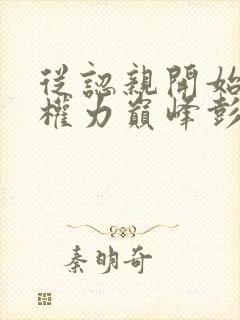 從認親開始
權力巔峰彭
秦明奇